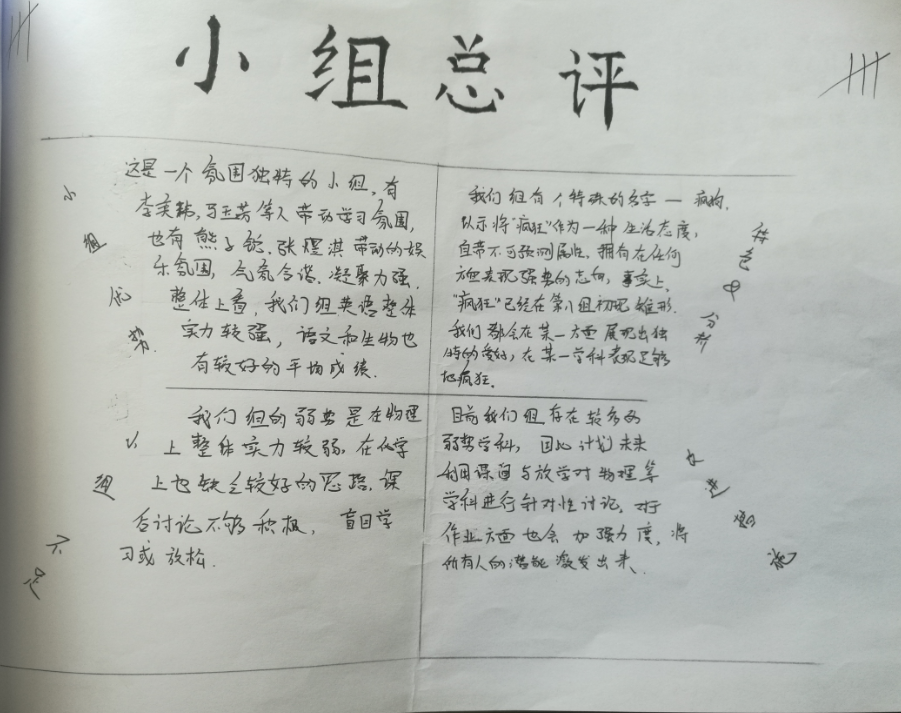 小组总评
小组优势
这是一个氛围独特的小组,有
李奕韩,马玉芳等人带动学习氛围,
也有熊子 张煜淇带动的娱
乐氛围,气氛合谐.凝聚力强.
整体上看,我们组英语整体
实力较强,语文和生物也
有较好的平均成绩.
特色与分析
我们组有个特殊的名字一疯狗,
以示将"疯狂"作为一种生活态度,
自带不可预测属性.拥有在任何
方面表现强势的志向,事实上,
"疯狂"已经在第八组初现雏形.
我们都会在某一方面展现出独
特的,在某一学科表现足够
地疯狂.
小组不足
我们组的弱势是在物理
上整体实力较弱,在化学
上也缺乏较好的思路.课
后讨论不够积极,盲目学
习或放松.
改进措施
目前我们组存在较多的
弱势学科,因此计划未来
利用课间与放学对物理等
学科进行针对性讨论,对于
作业方面也会加强力度,将
所有人的潜能激发出来.